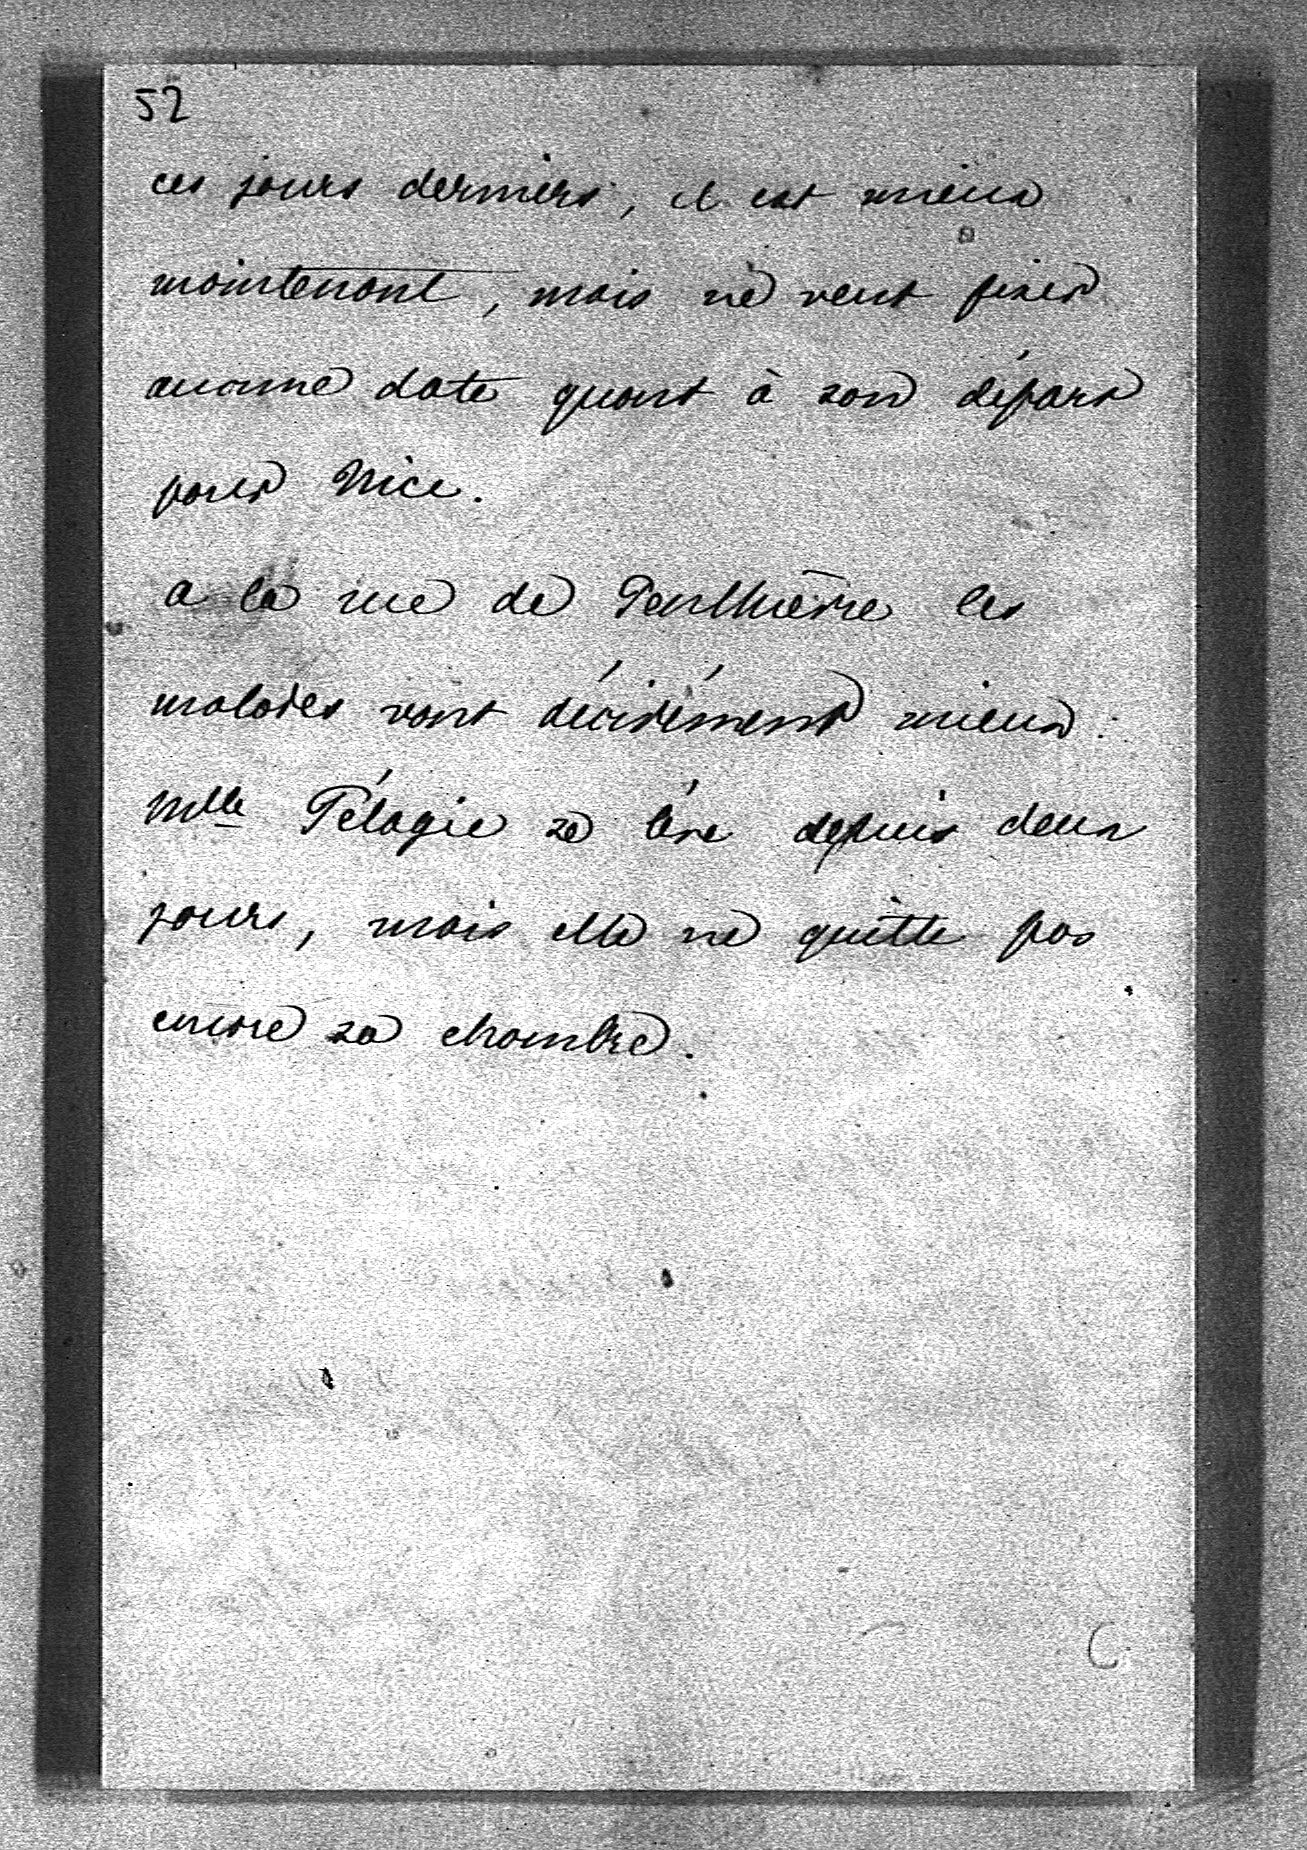 52
ces jours derniers, il est mieux
maintenant, mais ne veut fixer
aucune date quant à son départ
pour Nice.
a la rue de Penthièvre les
malades vont décidément mieux :
Mlle Pélagie se lève depuis deux
jours, mais elle ne quitte pas
encore sa chambre.
C